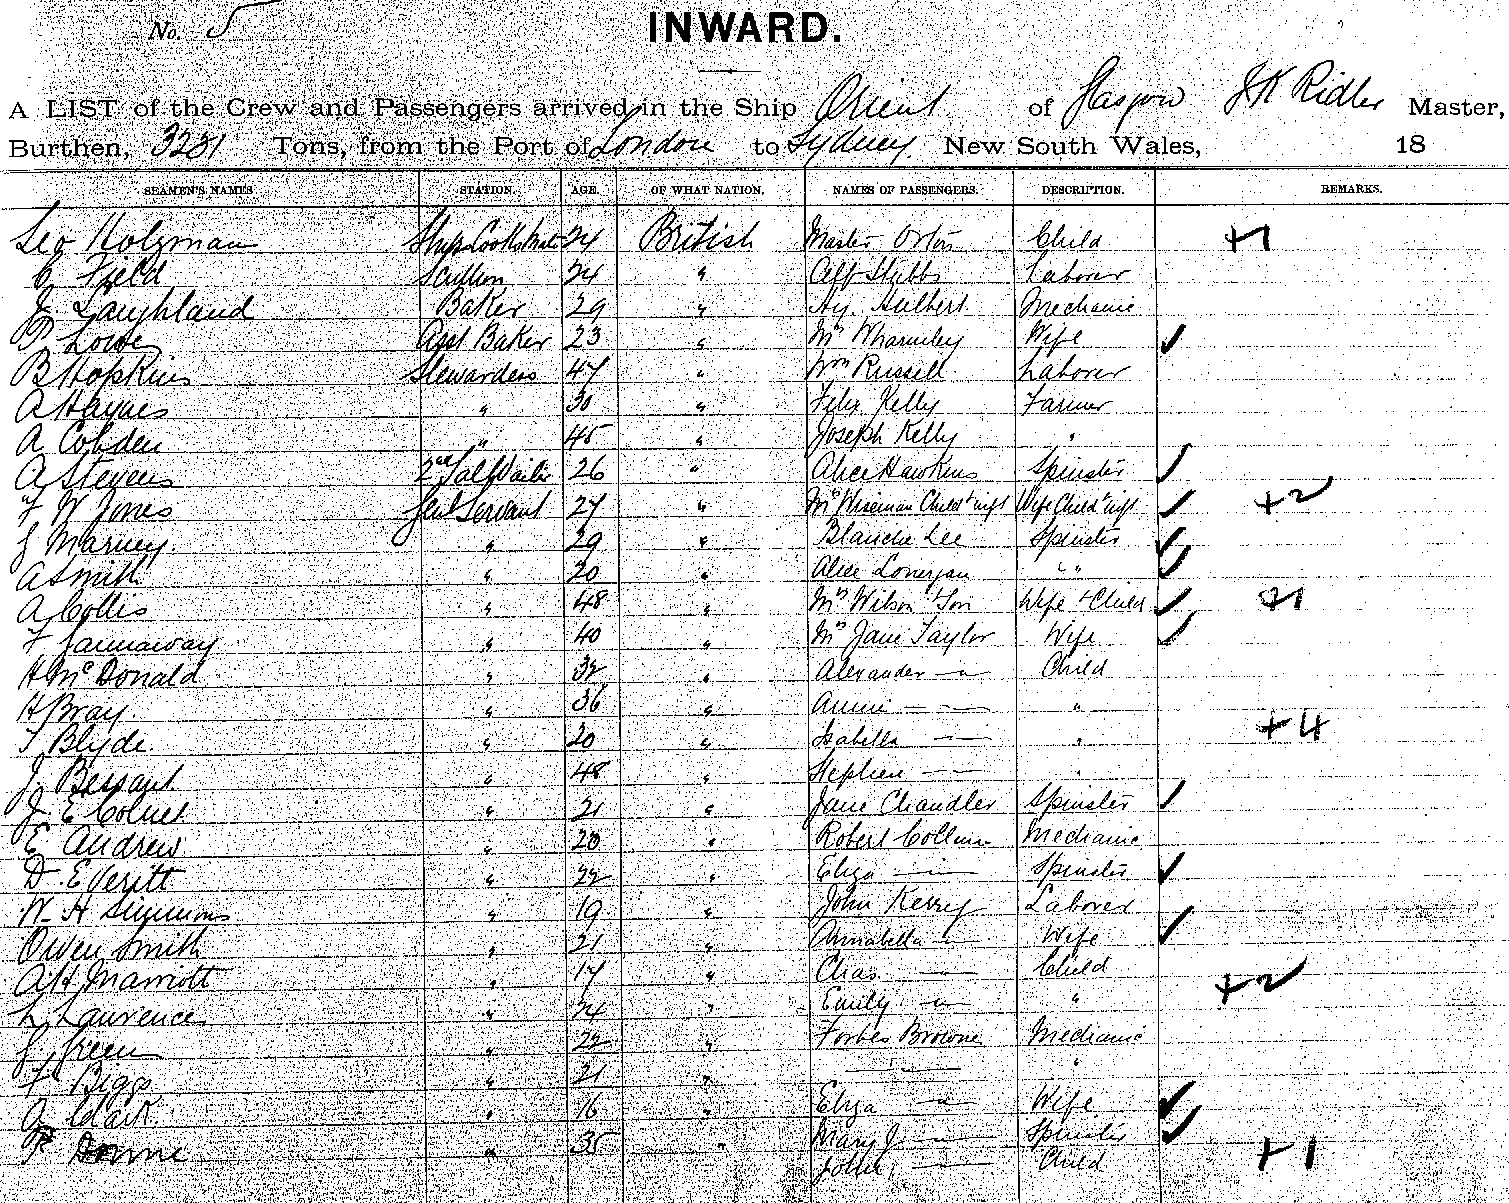 No. 5
INWARD.
A LIST of the Crew and Passengers arrived in the Ship Orient of Glasgow J K Ridler Master,
Burthen, 3231 Tons, from the Port of London to Sydney New South Wales, 18
SEAMEN'S NAMES STATION. AGE. OF WHAT NATION. NAMES OF PASSENGERS. DESCRIPTION. REMARKS.
Leo Holzman Ships Cooks Mate 24 British Master Orton Child +1
C Field Scullion 24 " Alf Stubbs Laborer
J. Laughland Baker 29 " Hy Hulbert Mechanic
P Lowe Asst Baker 23 " Mrs Wharmley Wife ✓
B Hopkins Stewardess 47 " Wm Russell Laborer
A Haynes " 30 " Felix Kelly Farmer
A Cobden " 45 " Joseph Kelly "
A Stevens 2nd Sal Waiter 26 " Alice Hawkins Spinster ✓
F W Jones Genl Servant 27 " Mrs Wiseman Child + inft Wife Child + inft ✓ +2
J Marney. " 29 " Blanche Lee Spinster ✓
A Smith " 20 " Alice Lonergan " " ✓
A Collis " 48 " Mrs Wilson + Son Wife + Child ✓ +1
F Jannaway " 40 " Mrs Jane Taylor Wife ✓
H McDonald " 32 " Alexander — " — Child
H Bray " 36 " Annie — — "
T Blyde " 20 " Isabella — — " +4
J. Bessant " 48 " Stephen — — "
J. E " 21 " Jane Chandler Spinster ✓
E Andrew " 20 " Robert Mechanic
D. Everitt " 22 " Eliza — — Spinster ✓
W. H Simmons " 19 " John Kerry Laborer
Owen Smith " 21 " Annabella — Wife ✓
A H Marriott " 17 " Chas. — Child
L Laurence " 24 " Emily — " — " +2
J Green " 22 " Forbes Browne Mechanic
F Biggs " 21 " — " — "
A Clark " 16 " Eliza — " — Wife ✓
F Donne " 35 " Mary J — Spinster ✓
— Child +1